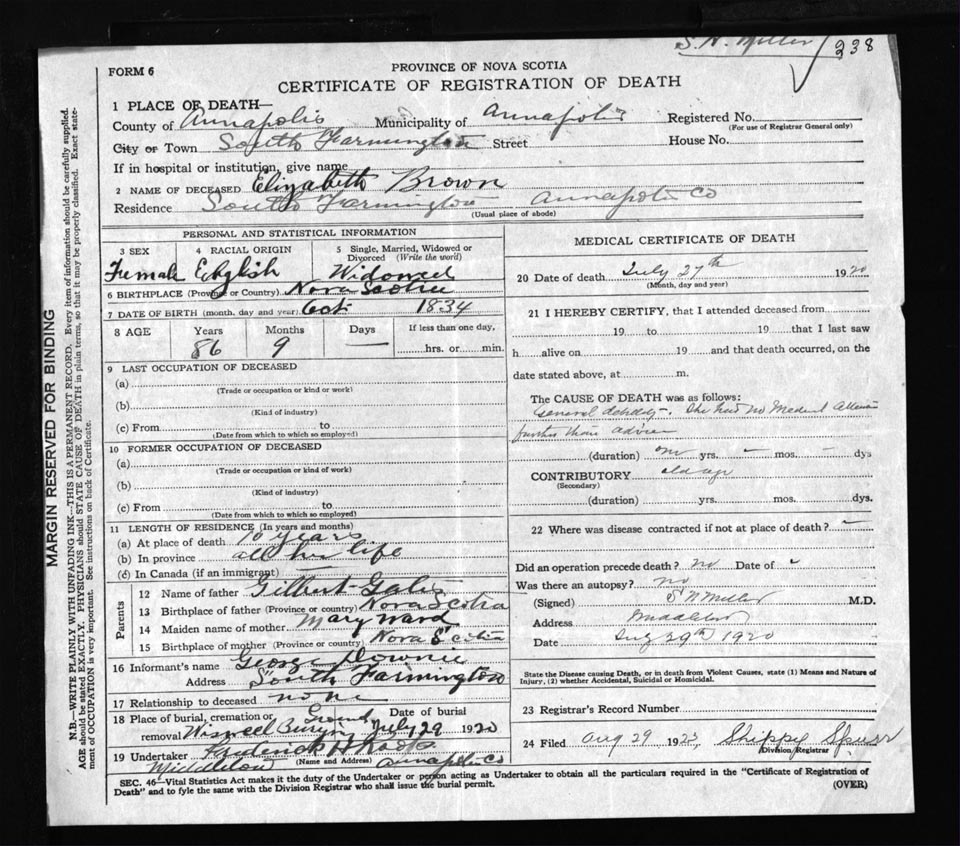 S. N. Miller 238
FORM 6
PROVINCE OF NOVA SCOTIA
CERTIFICATE OF REGISTRATION OF DEATH
MARGIN RESERVED FOR BINDING
N.B.—WRITE PLAINLY WITH UNFADING INK—THIS IS A PERMANENT RECORD. Every item of information should be carefully supplied.
AGE should be stated EXACTLY. PHYSICIANS should STATE CAUSE OF DEATH in plain terms, so that it may be properly classified. Exact state-
ment of OCCUPATION is very important. See instructions on back of Certificate.
1 PLACE OF DEATH—
County of Annapolis Municipality of Annapolis Registered No.
(For use of Registrar General only)
City or Town South Farmington Street House No.
If in hospital or institution, give name
2 NAME OF DECEASED Elizabeth Brown
Residence South Farmington Annapolis Co
(Usual place of abode)
PERSONAL AND STATISTICAL INFORMATION
3 SEX 4 RACIAL ORIGIN 5 Single, Married, Widowed or
Divorced (Write the word)
Female English Widowed
6 BIRTHPLACE (Province or Country) Nova Scotia
7 DATE OF BIRTH (month, day and year) Oct 1834
8 AGE Years Months Days If less than one day,
86 9 — hrs. or min.
9 LAST OCCUPATION OF DECEASED
(a)
(Trade or occupation or kind or work)
(b)
(Kind of industry)
(c) From to
(Date from which to which so employed)
10 FORMER OCCUPATION OF DECEASED
(a)
(Trade or occupation or kind of work)
(b)
(Kind of industry)
(c) From to
(Date from which to which so employed)
11 LENGTH OF RESIDENCE (In years and months)
(a) At place of death 10 years
(b) In province all her life
(c) In Canada (if an immigrant) —
Parents
12 Name of father Gilbert
13 Birthplace of father (Province or country) Nova Scotia
14 Maiden name of mother Mary Ward
15 Birthplace of mother (Province or country) Nova Scotia
16 Informant's name George Downie
Address South Farmington
17 Relationship to deceased none
18 Place of burial, cremation or Ground Date of burial
removal Wiswell Burying July 29 1920
19 Undertaker Frederick H
(Name and Address)
Middleton Annapolis Co
MEDICAL CERTIFICATE OF DEATH
20 Date of death July 27th 1920
(Month, day and year)
21 I HEREBY CERTIFY, that I attended deceased from
19 to 19 that I last saw
h alive on 19 and that death occurred, on the
date stated above, at m.
The CAUSE OF DEATH was as follows:
General debility. She had no Medical Attention
further than advice
(duration) one yrs. — mos. — dys
CONTRIBUTORY old age
(Secondary)
(duration) yrs. mos. dys.
22 Where was disease contracted if not at place of death? —
Did an operation precede death? no Date of -
Was there an autopsy? no
(Signed) S N Miller M.D.
Address Middleton
Date Aug 29th 1920
State the Disease causing Death, or in death from Violent Causes, state (1) Means and Nature of
Injury, (2) whether Accidental, Suicidal or Homicidal.
23 Registrar's Record Number
24 Filed Aug 29 192 Shippy Spurr
Division Registrar
SEC. 46—Vital Statistics Act makes it the duty of the Undertaker or person acting as Undertaker to obtain all the particulars required in the "Certificate of Registration of
Death" and to fyle the same with the Division Registrar who shall issue the burial permit.
(OVER)